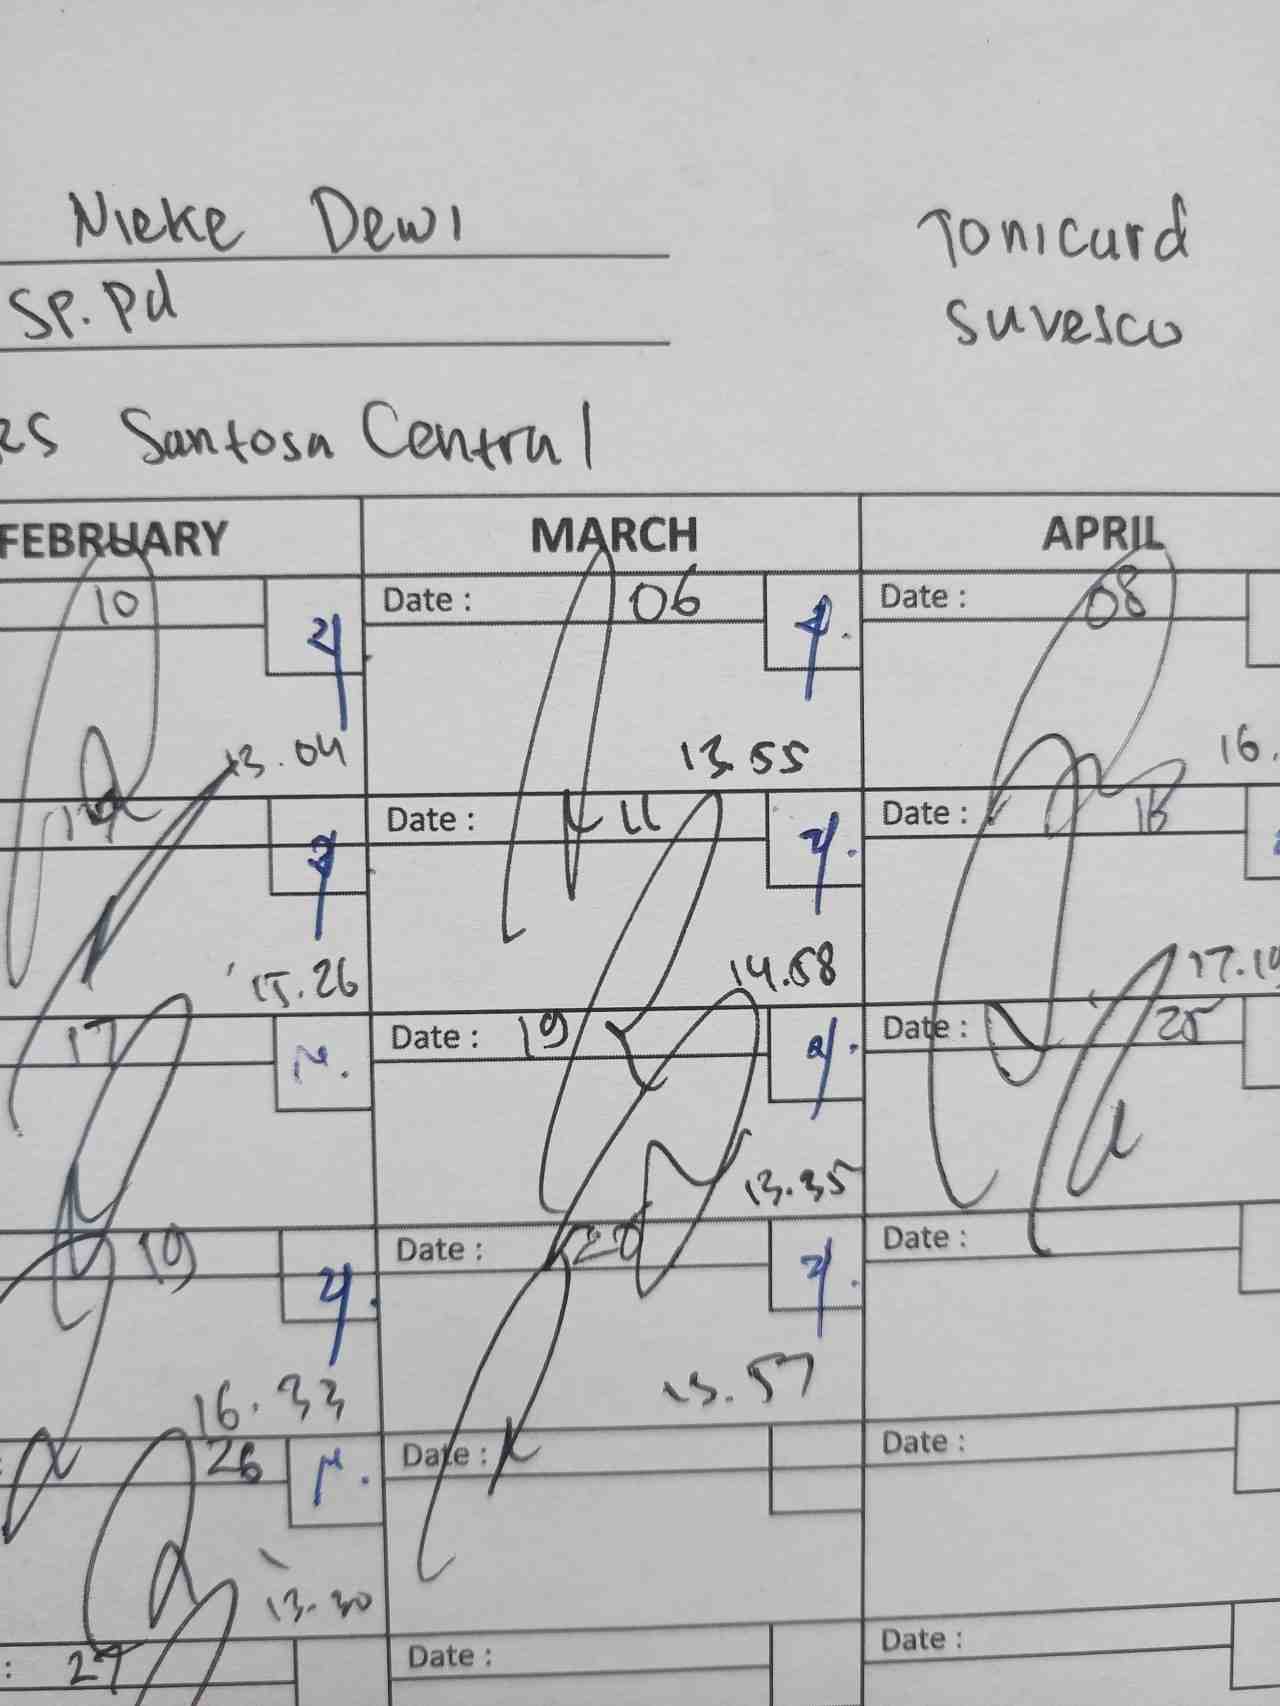 Nieke Dewi
Tonicard
Sp.Pd
suvesco
RS Santosa Central
FEBRUARY MARCH APRIL
10 Date : 06 Date : 08
13.04 13.55 16.
Date : 11 Date : 15
15.26 14.58 17.19
17 Date : 19 Date : 25
13.35
19 Date : 20 Date :
16.33 15.57
26 Date : Date :
13.30
: 27 Date : Date :